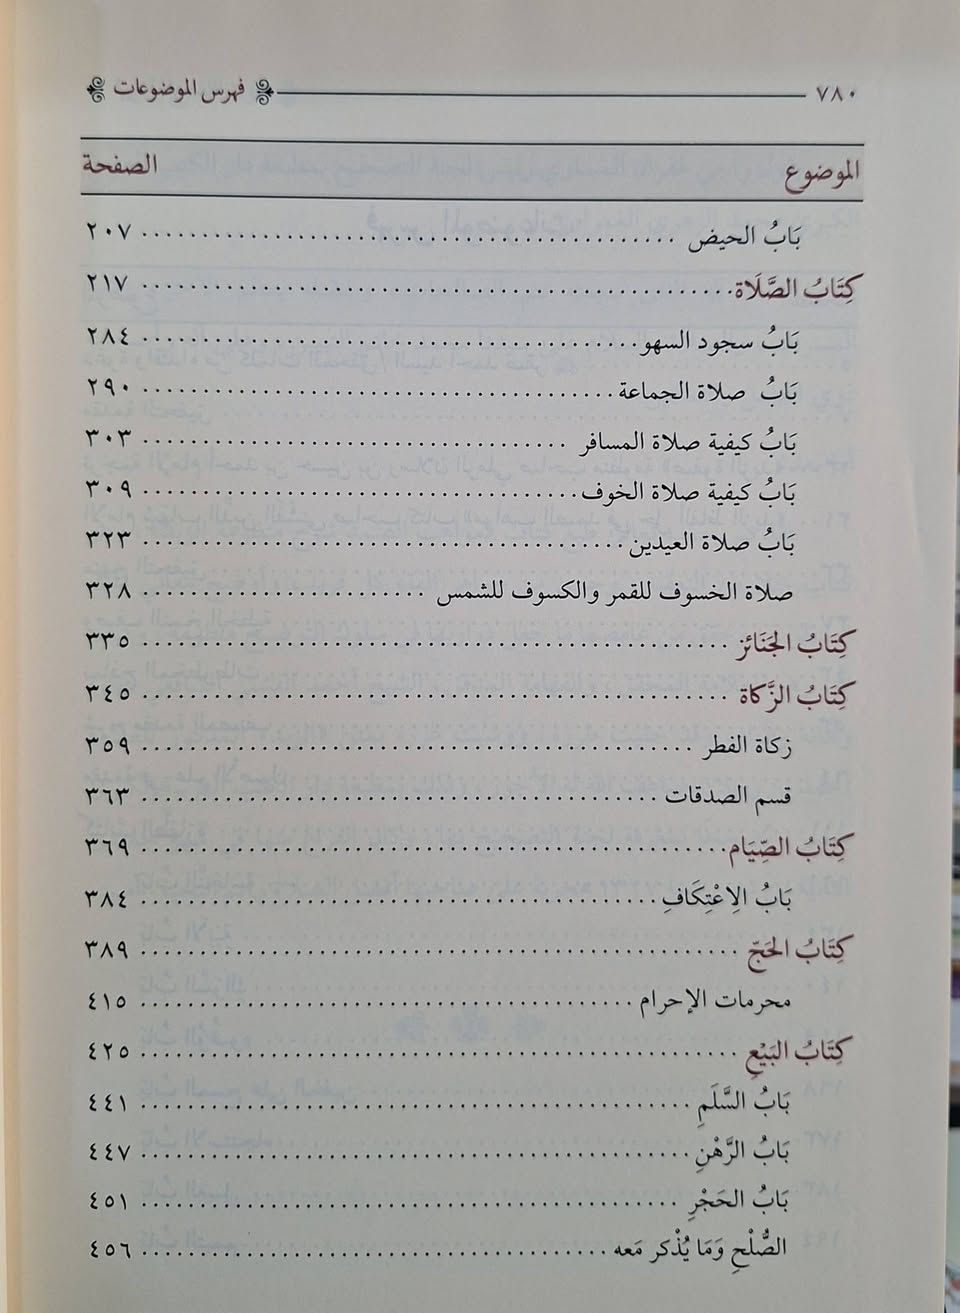 ٧٨٠ فهرس الموضوعات
الموضوع الصفحة
بَابُ الحيض ٢٠٧
كِتَابُ الصَّلَاة ٢١٧
بَابُ سجود السهو ٢٨٤
بَابُ صلاة الجماعة ٢٩٠
بَابُ كيفية صلاة المسافر ٣٠٣
بَابُ كيفية صلاة الخوف ٣٠٩
بَابُ صلاة العيدين ٣٢٣
صلاة الخسوف للقمر والكسوف للشمس ٣٢٨
كِتَابُ الجَنَائز ٣٣٥
كِتَابُ الزَّكَاة ٣٤٥
زكاة الفطر ٣٥٩
قسم الصدقات ٣٦٣
كِتَابُ الصِّيَام ٣٦٩
بَابُ الِاعْتِكَافِ ٣٨٤
كِتَابُ الحَجّ ٣٨٩
محرمات الإحرام ٤١٥
كِتَابُ البَيْعِ ٤٢٥
بَابُ السَّلَمِ ٤٤١
بَابُ الرَّهْنِ ٤٤٧
بَابُ الحَجْرِ ٤٥١
الصُّلْحِ وَمَا يُذْكر مَعه ٤٥٦